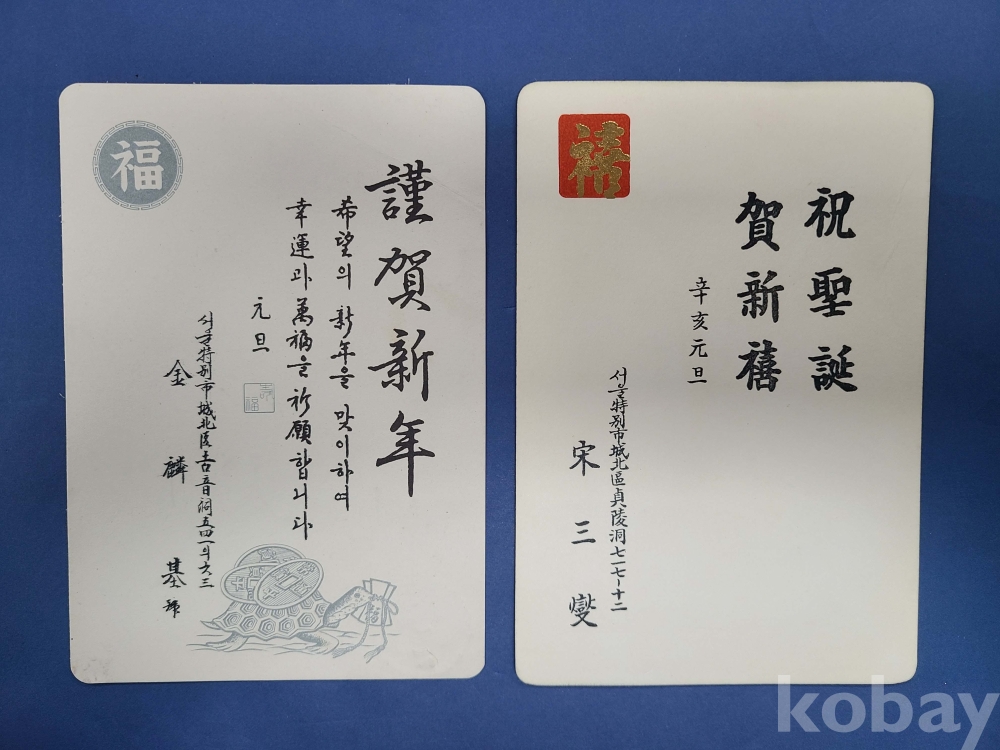 福
謹賀新年
希望의 新年을 맞이하여
幸運과 萬福을 祈願합니다
元旦
서울特別市城北區吉音洞五四一의六三
金麟基 拜
禧
祝聖誕
賀新禧
辛亥元旦
서울特別市城北區貞陵洞七一七~十二
宋三燮
kobay